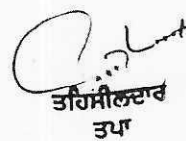 ਤਹਿਸੀਲਦਾਰ
ਤਪਾ